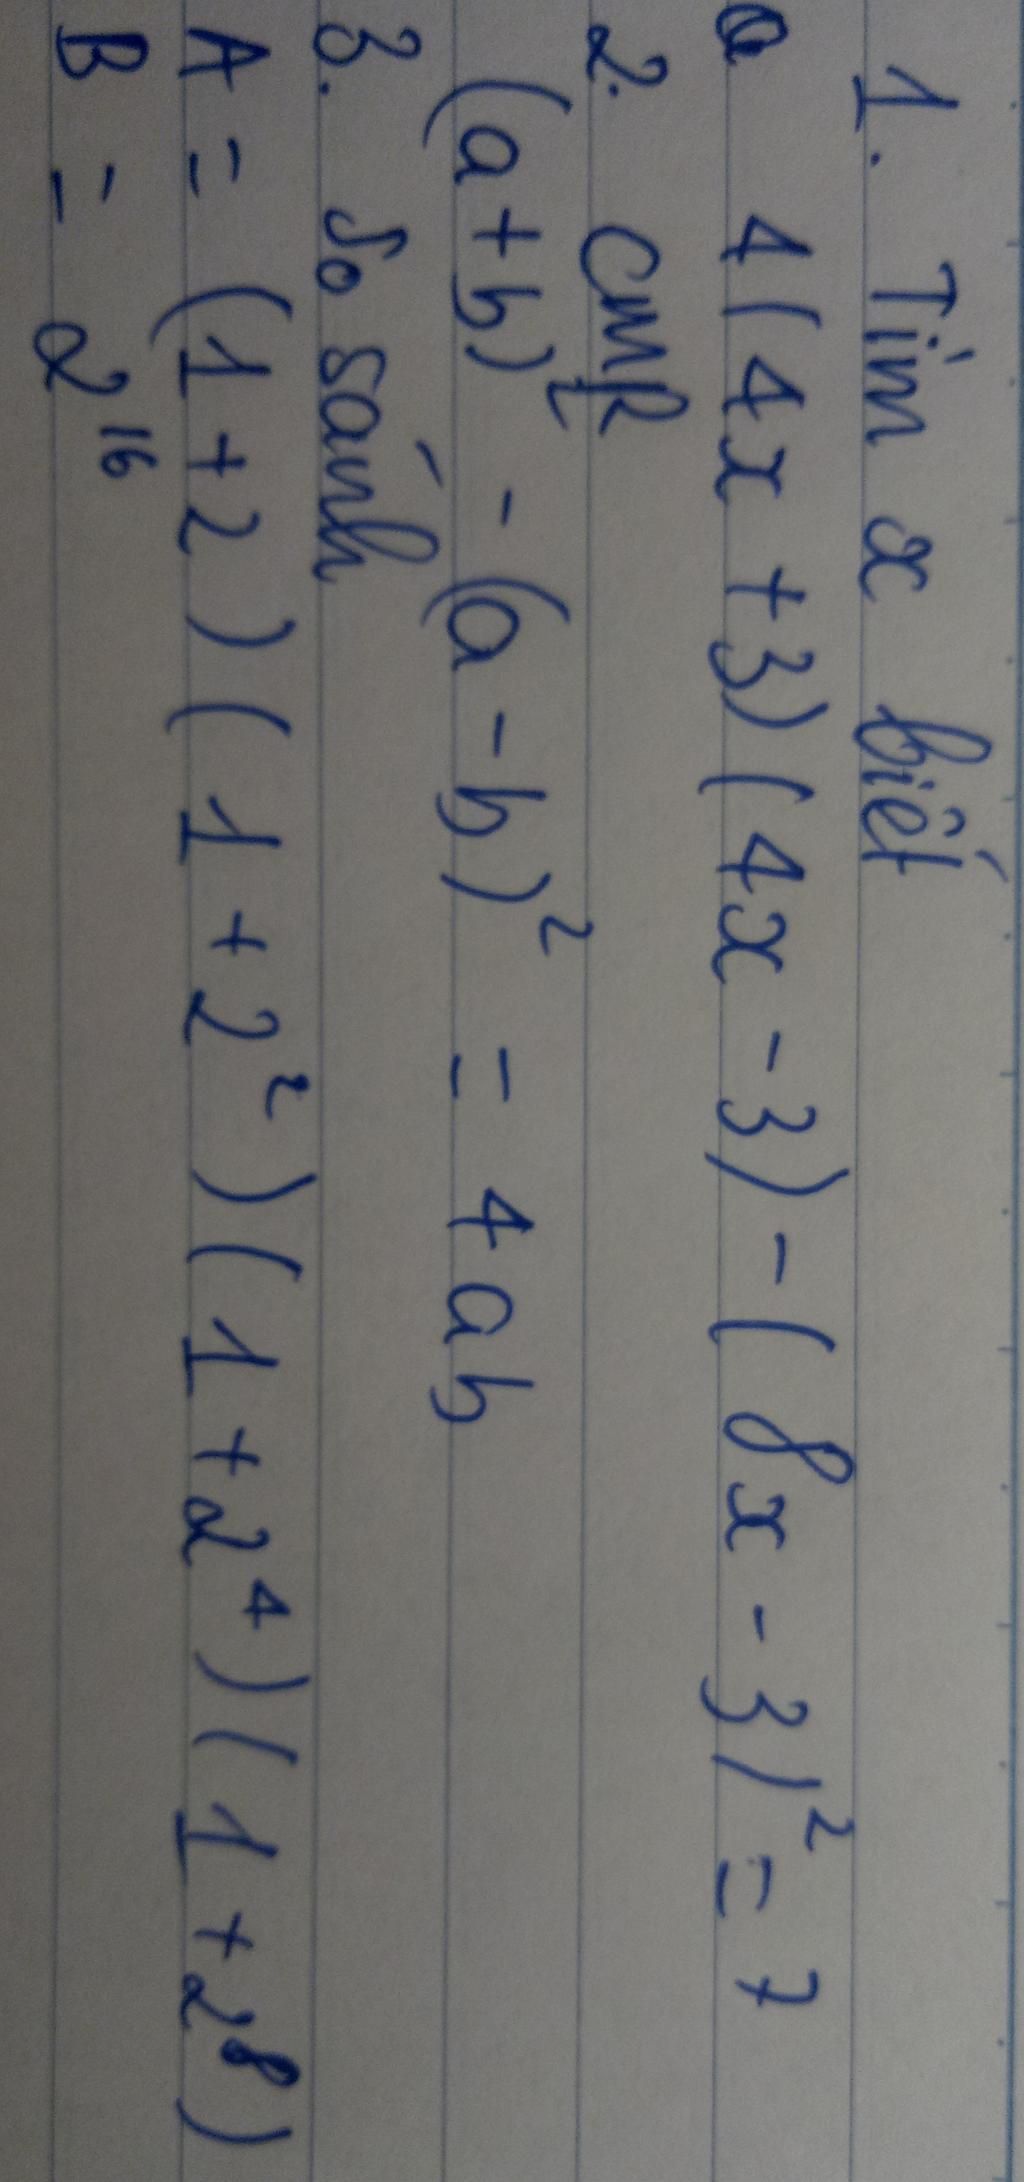 1. Tìm x biết
a 4(4x+3)(4x-3)-(8x-3)² = 7
2. CMR
(a+b)² - (a-b)² = 4ab
3. So sánh
A = (1+2)(1+2²)(1+2⁴)(1+2⁸)
B = 2¹⁶